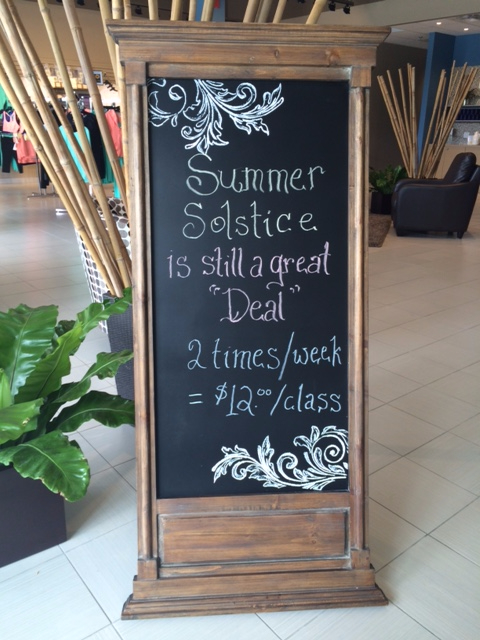 Summer
Solstice
is still a great
"Deal"
2 times/week
= $12.00/class